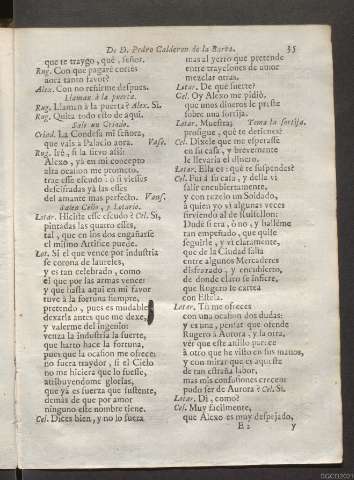 De D. Pedro Calderon de la Barca. 35
que te traygo, què, señor.
Rug. Con que pagarè cortès
nora tanto favor?
Alex. Con no reñirme despues.
Llaman à la puerta.
Rug. Llaman à la puerta? Alex. Si.
Rug. Quita todo esto de aqui.
Sale un Criado.
Criad. La Condesa mi señora,
que vais à Palacio aora. Vase.
Rug. Irè, si la sirvo assi:
Alexo, yà en mi concepto
alta ocasion me prometo,
trae esse escudo: ò si vieses
descifradas yà las eses
del amante mas perfecto. Vans.
Salen Celio, y Lotario.
Lotar. Hiciste esse escudo? Cel. Si,
pintadas las quatro eses,
tal, que en los dos engañarse
el mismo Artifice puede.
Lot. Si el que vence por industria
se corona de laureles,
y es tan celebrado, como
el que por las armas vence:
y que hasta aqui en mi favor
tuve à la fortuna siempre,
pretendo, pues es mudable
dexarla antes que me dexe,
y valerme del ingenio:
venza la industria la suerte,
que harto hace la fortuna,
pues que la ocasion me ofrece:
no fuera traydor, si el Cielo
no me hiciera que lo fuesse,
atribuyendome glorias,
que yà es fuerza que sustente,
demàs de que por amor
ninguno este nombre tiene.
Cel. Dices bien, y no lo fuera
mas al yerro que pretende
entre trayciones de amor
mezclar otras.
Lotar. De què suerte?
Cel. Oy Alexo me pidiò,
que unos dineros le preste
sobre una sortija.
Lotar. Muestra; Toma la sortija.
prosigue, què te detienes?
Cel. Dixele que me esperasse
en su casa, y brevemente
le llevaria el dinero.
Lotar. Ella es: què te suspende?
Cel. Fui à su casa, y della vi
salir encubiertamente,
y con rezelo un Soldado,
à quien yo vi algunas veces
sirviendo al de Ruisellon:
Dude si era, ò no, y hallème
tan empeñado, que quise
seguirle, y vi claramente,
que de la Ciudad salta
entre algunos Mercaderes
disfrazado, y encubierto,
de donde claro se infiere,
que Rugero se cartea
con Estela.
Lotar. Tu me ofreces
con una ocasion dos dudas:
y es una, pensar que ofende
Rugero à Aurora, y la otra,
vèr que este anillo parece
à otro que he visto en sus manos,
y con mirar que es aqueste
de tan estraña labor,
mas mis confusiones crecen:
pudo ser de Aurora? Cel. Si.
Lotar. Di, como?
Cel. Muy facilmente,
que Alexo es muy despejado,
E 2 y